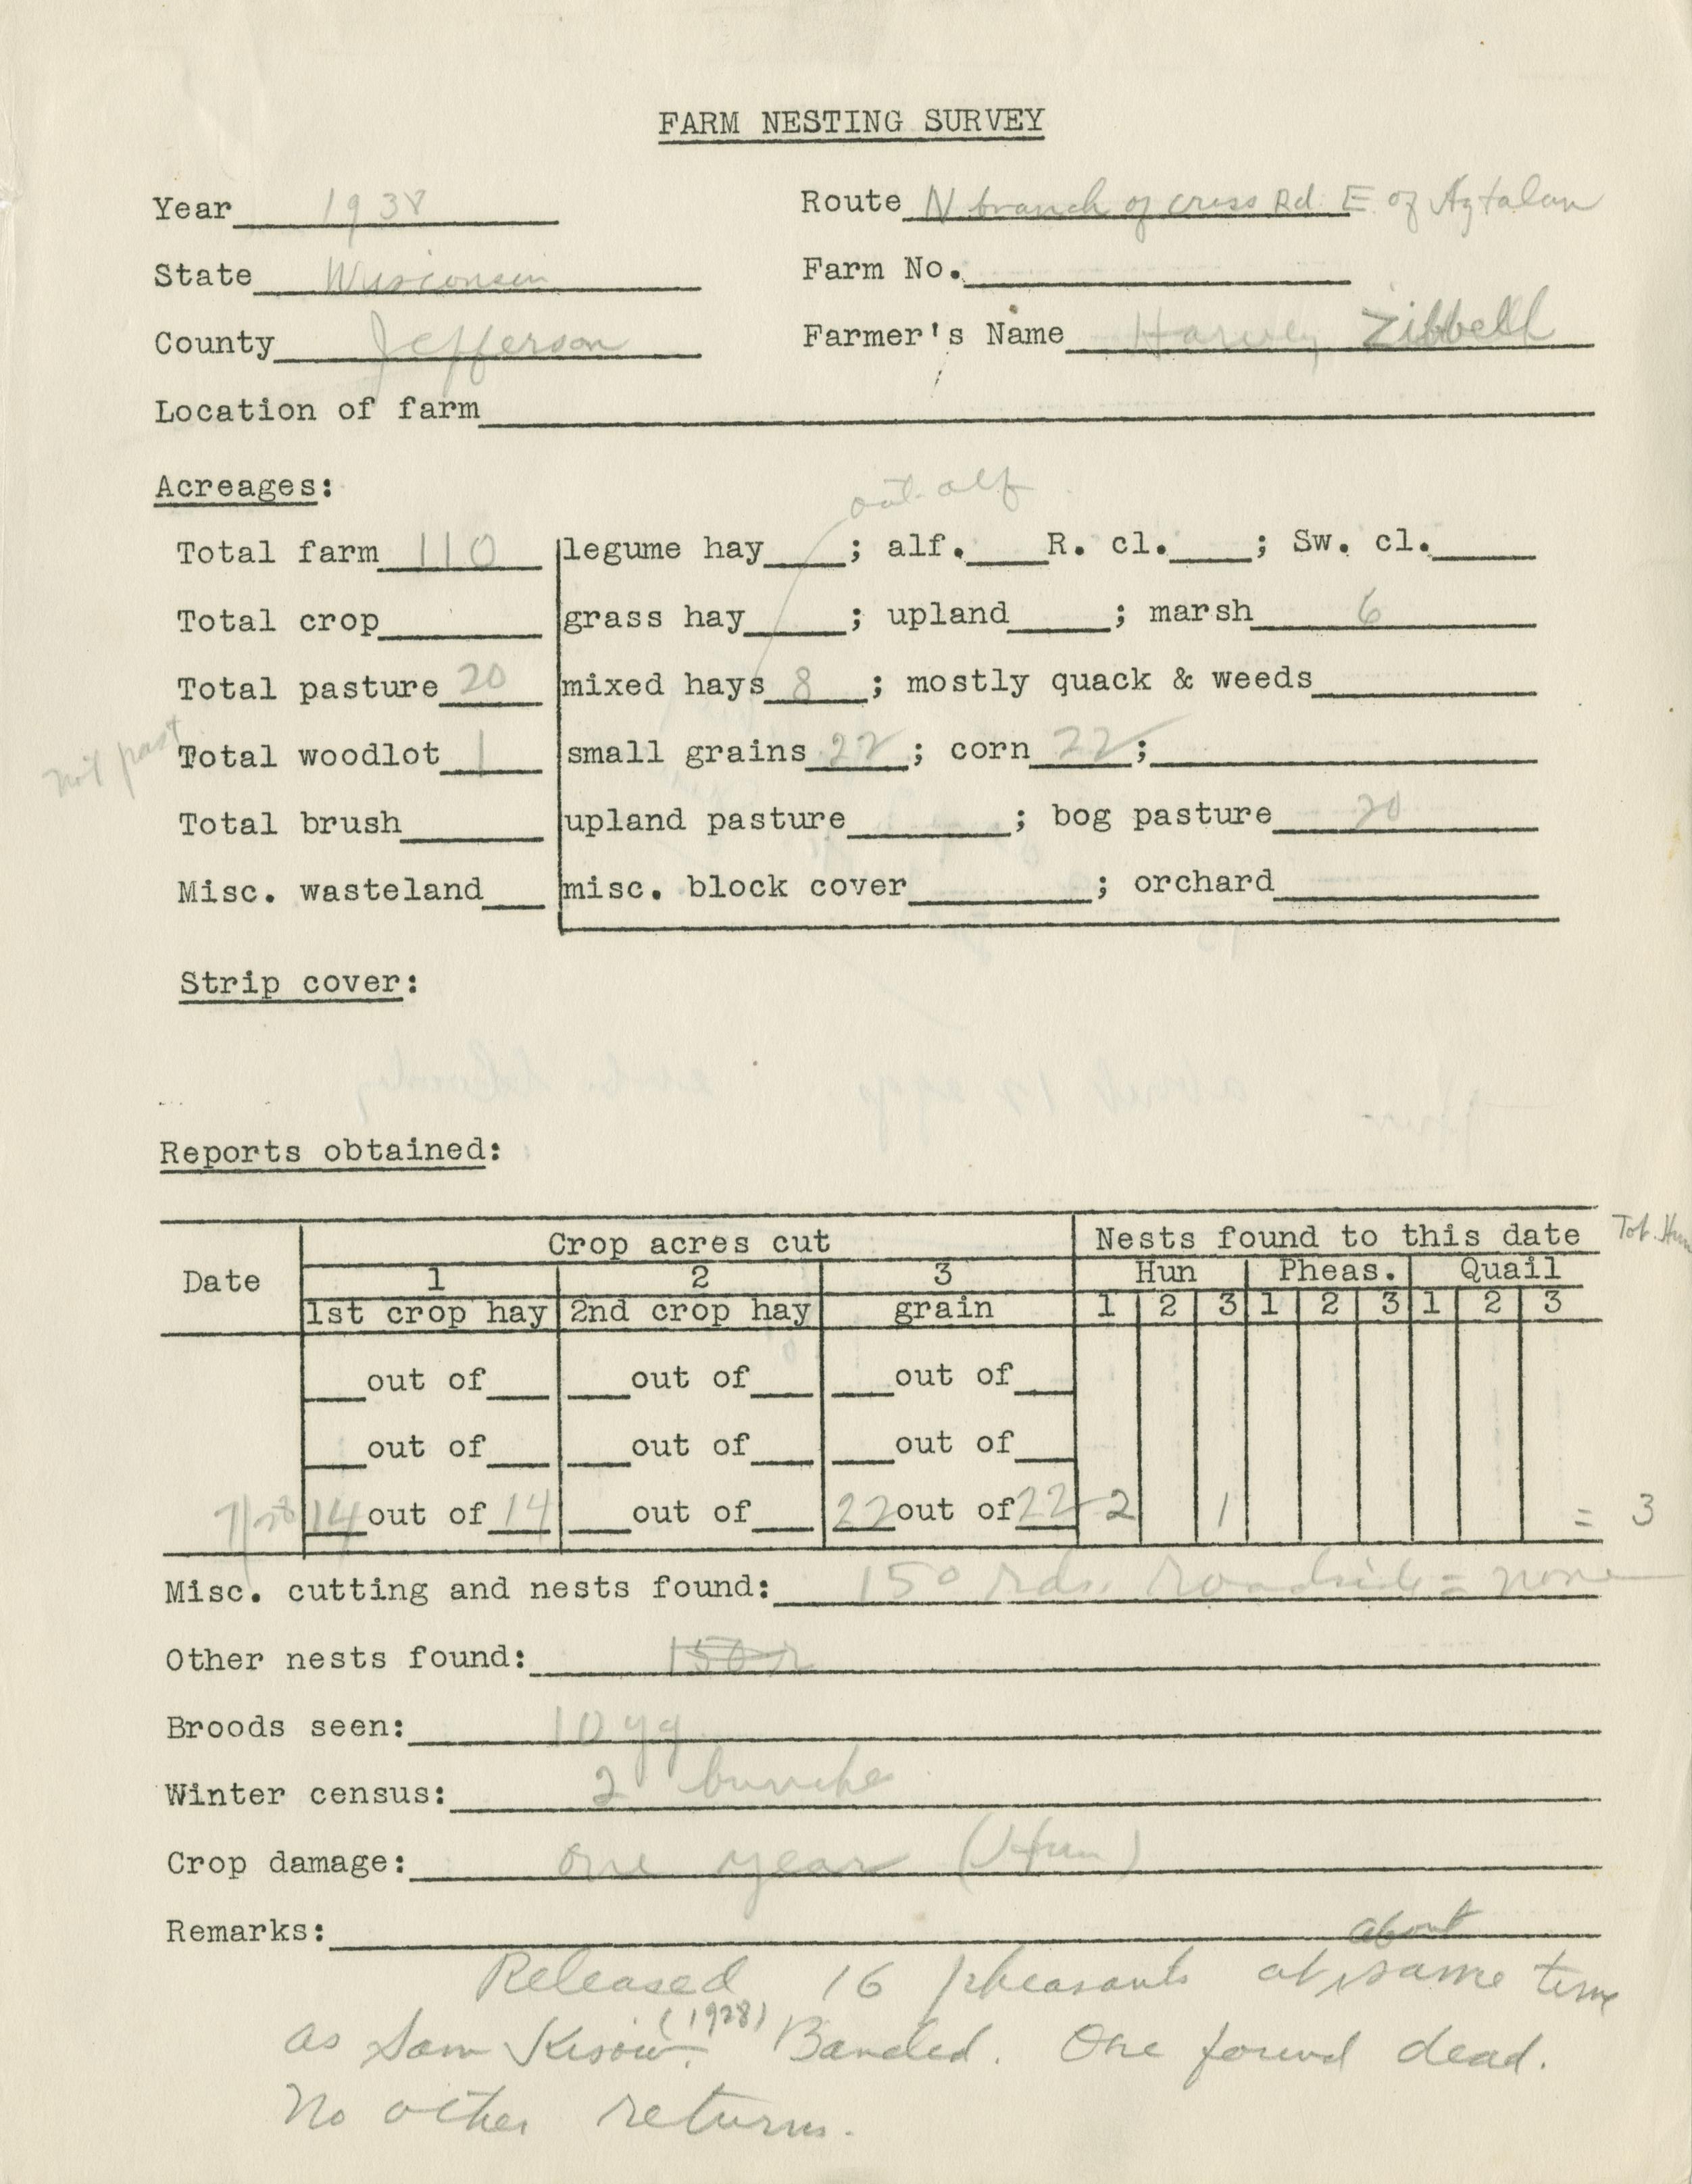 FARM NESTING SURVEY
Year 1938 Route N branch of cross Rd. E of Aztalan
State Wisconsin Farm No.
County Jefferson Farmer's Name Harvey Zibbell
Location of farm
Acreages:
oat. alf
Total farm 110 legume hay ; alf. R. cl. ; Sw. cl.
Total crop grass hay ; upland ; marsh 6
Total pasture 20 mixed hays 8 ; mostly quack & weeds
not past. Total woodlot 1 small grains 22 ; corn 22 ;
Total brush upland pasture ; bog pasture 20
Misc. wasteland misc. block cover ; orchard
Strip cover:
Reports obtained:
Date Crop acres cut Nests found to this date Tot. Hun
1 2 3 Hun Pheas. Quail
1st crop hay 2nd crop hay grain 1 2 3 1 2 3 1 2 3
out of out of out of
out of out of out of
7/28 14 out of 14 out of 22 out of 22 2 1 = 3
Misc. cutting and nests found: 150 rds. roadside = none
Other nests found:
Broods seen: 10 yg
Winter census: 2 bunches
Crop damage: one year (Hun)
Remarks:
Released 16 pheasants at about same time
as Sam (1928) Banded. One found dead.
No other returns.